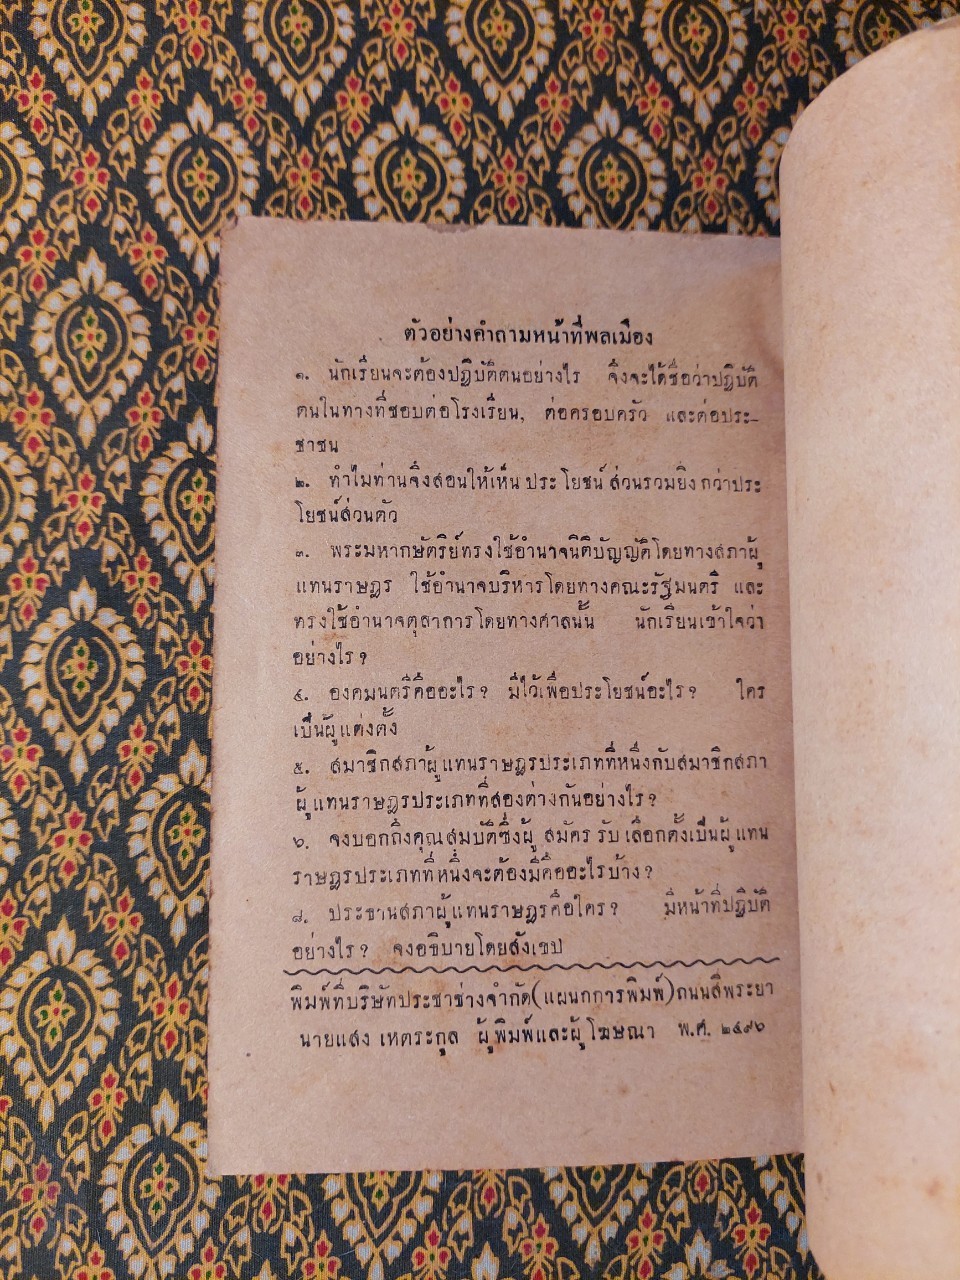 ตัวอย่างคำถามหน้าที่พลเมือง
๑. นักเรียนจะต้องปฏิบัติตนอย่างไร จึงจะได้ชื่อว่าปฏิบัติ
ตนในทางที่ชอบต่อโรงเรียน, ต่อครอบครัว และต่อประ-
ชาชน
๒. ทำไมท่านจึงสอนให้เห็นประโยชน์ส่วนรวมยิ่งกว่าประ
โยชน์ส่วนตัว
๓. พระมหากษัตริย์ทรงใช้อำนาจนิติบัญญัติโดยทางสภาผู้
แทนราษฎร ใช้อำนาจบริหารโดยทางคณะรัฐมนตรี และ
ทรงใช้อำนาจตุลาการโดยทางศาลนั้น นักเรียนเข้าใจว่า
อย่างไร?
๔. องคมนตรีคืออะไร? มีไว้เพื่อประโยชน์อะไร? ใคร
เป็นผู้แต่งตั้ง
๕. สมาชิกสภาผู้แทนราษฎรประเภทที่หนึ่งกับสมาชิกสภา
ผู้แทนราษฎรประเภทที่สองต่างกันอย่างไร?
๖. จงบอกถึงคุณสมบัติซึ่งผู้สมัครรับเลือกตั้งเป็นผู้แทน
ราษฎรประเภทที่หนึ่งจะต้องมีคืออะไรบ้าง?
๘. ประธานสภาผู้แทนราษฎรคือใคร? มีหน้าที่ปฏิบัติ
อย่างไร? จงอธิบายโดยสังเขป
พิมพ์ที่บริษัทประชาช่างจำกัด(แผนกการพิมพ์)ถนนสี่พระยา
นายแสง เหตระกูล ผู้พิมพ์และผู้โฆษณา พ.ศ. ๒๔๙๖